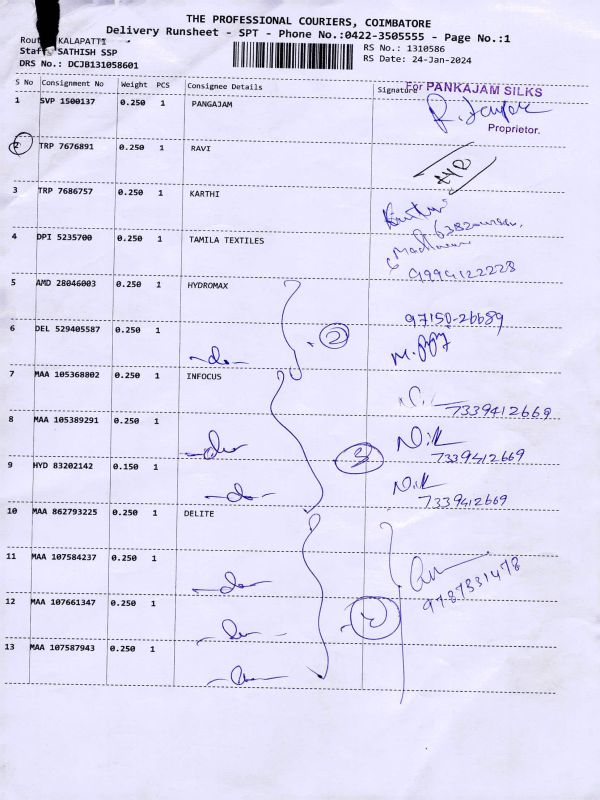 THE PROFESSIONAL COURIERS, COIMBATORE
Delivery Runsheet - SPT - Phone No.:0422-3505555 - Page No.:1
KALAPATTI
RS No.: 1310586
SATHISH SSP
RS Date: 24-Jan-2024
DRS No.: DCJB131058601
S No Consignment No Weight PCS Consignee Details Signature
For PANKAJAM SILKS
1 SVP 1500137 0.250 1 PANGAJAM
Proprietor.
2 TRP 7676891 0.250 1 RAVI
3 TRP 7686757 0.250 1 KARTHI
4 DPI 5235700 0.250 1 TAMILA TEXTILES
9994122228
5 AMD 28046003 0.250 1 HYDROMAX
97150-26689
6 DEL 529405587 0.250 1
-do- 2
7 MAA 105368802 0.250 1 INFOCUS
7339412669
8 MAA 105389291 0.250 1
-do- 3
7339412669
9 HYD 83202142 0.150 1
-do-
7339412669
10 MAA 862793225 0.250 1 DELITE
11 MAA 107584237 0.250 1
-do-
9787331478
12 MAA 107661347 0.250 1
-do-
13 MAA 107587943 0.250 1
-do-